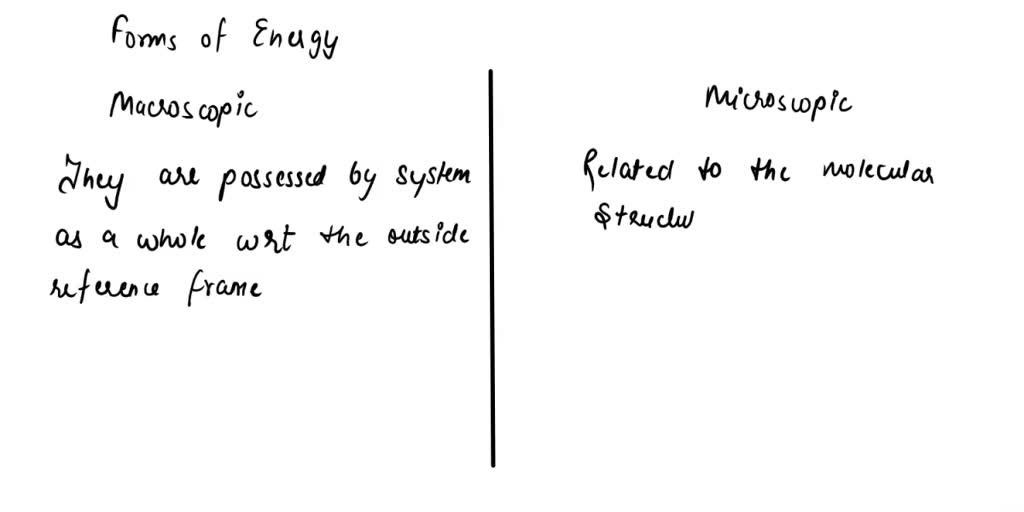 Forms of Energy
Macroscopic
They are possessed by system
as a whole wrt the outside
reference frame
Microscopic
Related to the molecular
Structu